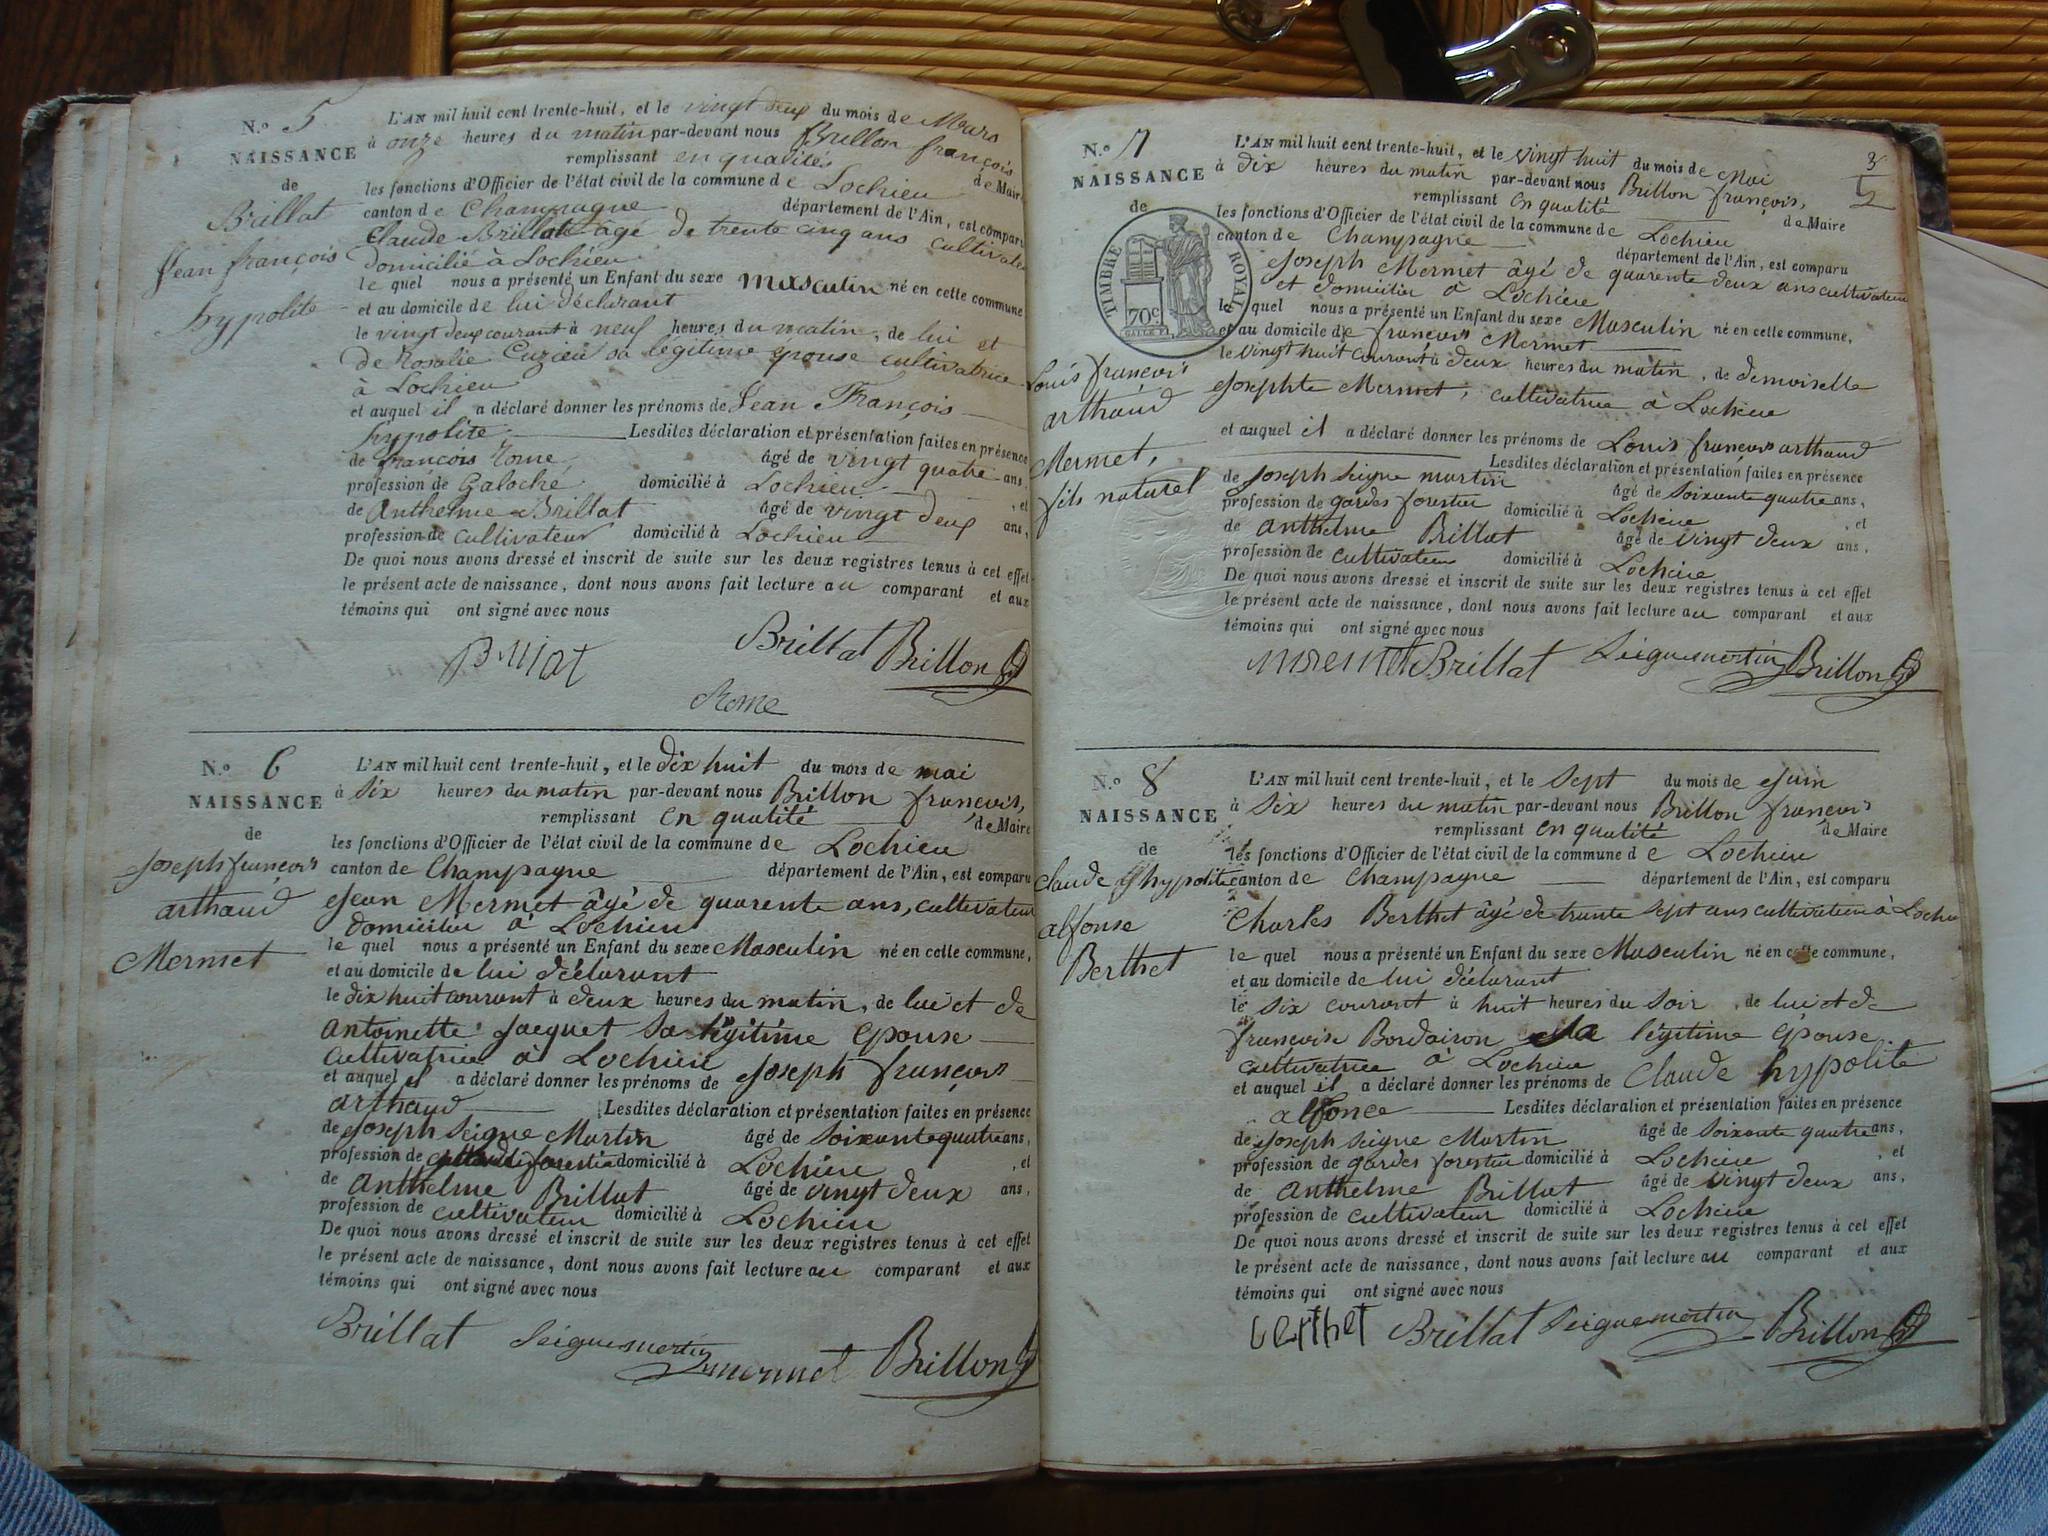 N.o 5
NAISSANCE
de
Brillat
Jean françois
hypolite
L'AN mil huit cent trente-huit, et le vingt deux du mois de Mars
à onze heures du matin par-devant nous Brillon françois
remplissant en qualités de Maire
les fonctions d'Officier de l'état civil de la commune de Lochieu
canton de Champagne département de l'Ain, est comparu
Claude Brillat âgé de trente cinq ans cultivateur
domicilié à Lochieu
le quel nous a présenté un Enfant du sexe masculin né en cette commune
et au domicile de lui déclarant
le vingt deux courant à neuf heures du matin, de lui et
de Rosalie Cuzieu sa légitime épouse cultivatrice
à Lochieu
et auquel il a déclaré donner les prénoms de Jean François
hypolite Lesdites déclaration et présentation faites en présence
de françois Rome âgé de vingt quatre ans,
profession de Galoché domicilié à Lochieu, et
de Anthelme Brillat âgé de vingt deux ans,
profession de cultivateur domicilié à Lochieu
De quoi nous avons dressé et inscrit de suite sur les deux registres tenus à cet effet
le présent acte de naissance, dont nous avons fait lecture au comparant et aux
témoins qui ont signé avec nous
Brillat Brillon
Rome
N.o 6
NAISSANCE
de
Joseph françois
arthaud
Mermet
L'AN mil huit cent trente-huit, et le dix huit du mois de mai
à six heures du matin par-devant nous Brillon françois,
remplissant en qualité de Maire
les fonctions d'Officier de l'état civil de la commune de Lochieu
canton de Champagne département de l'Ain, est comparu
Jean Mermet âgé de quarente ans, cultivateur
domicilié à Lochieu
le quel nous a présenté un Enfant du sexe Masculin né en cette commune,
et au domicile de lui déclarant
le dix huit courant à deux heures du matin, de lui et de
antoinette Jacquet sa légitime épouse
cultivatrice à Lochieu
et auquel il a déclaré donner les prénoms de Joseph françois
arthaud Lesdites déclaration et présentation faites en présence
de Joseph Seigne Martin âgé de soixante quatre ans,
profession de forestier domicilié à Lochieu, et
de Anthelme Brillat âgé de vingt deux ans,
profession de cultivateur domicilié à Lochieu
De quoi nous avons dressé et inscrit de suite sur les deux registres tenus à cet effet
le présent acte de naissance, dont nous avons fait lecture au comparant et aux
témoins qui ont signé avec nous
Brillat Seignemartin mermet Brillon
3
N.o 7
NAISSANCE
de
TIMBRE ROYAL
70c
Louis françois
arthaud
Mermet,
fils naturel
L'AN mil huit cent trente-huit, et le vingt huit du mois de Mai
à dix heures du matin par-devant nous Brillon françois,
remplissant en qualité de Maire
les fonctions d'Officier de l'état civil de la commune de Lochieu
canton de Champagne département de l'Ain, est comparu
Joseph Mermet âgé de quarente deux ans cultivateur
et domicilié à Lochieu
le quel nous a présenté un Enfant du sexe Masculin né en cette commune,
et au domicile de françois Mermet
le vingt huit courant à deux heures du matin, de demoiselle
Josephte Mermet, cultivatrice à Lochieu
et auquel il a déclaré donner les prénoms de Louis françois arthaud
Lesdites déclaration et présentation faites en présence
de Joseph Seigne martin âgé de soixante quatre ans,
profession de gardes forestier domicilié à Lochieu, et
de anthelme Brillat âgé de vingt deux ans,
profession de cultivateur domicilié à Lochieu
De quoi nous avons dressé et inscrit de suite sur les deux registres tenus à cet effet
le présent acte de naissance, dont nous avons fait lecture au comparant et aux
témoins qui ont signé avec nous
Brillat Seignemartin Brillon
N.o 8
NAISSANCE
de
Claude hypolite
alfonse
Berthet
L'AN mil huit cent trente-huit, et le sept du mois de Juin
à six heures du matin par-devant nous Brillon françois
remplissant en qualité de Maire
les fonctions d'Officier de l'état civil de la commune de Lochieu
canton de Champagne département de l'Ain, est comparu
Charles Berthet âgé de trente sept ans cultivateur à Lochieu
le quel nous a présenté un Enfant du sexe Masculin né en cette commune,
et au domicile de lui déclarant
le six courant à huit heures du soir, de lui et de
françoise Bordairon sa légitime épouse
cultivatrice à Lochieu
et auquel il a déclaré donner les prénoms de Claude hypolite
alfonce Lesdites déclaration et présentation faites en présence
de Joseph Seigne Martin âgé de soixante quatre ans,
profession de gardes forestier domicilié à Lochieu, et
de Anthelme Brillat âgé de vingt deux ans,
profession de cultivateur domicilié à Lochieu
De quoi nous avons dressé et inscrit de suite sur les deux registres tenus à cet effet
le présent acte de naissance, dont nous avons fait lecture au comparant et aux
témoins qui ont signé avec nous
berthet Brillat Seignemartin Brillon